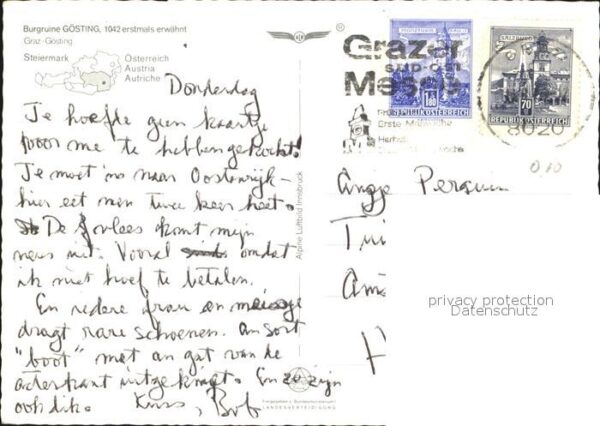 Burgruine GÖSTING, 1042 erstmals erwähnt
Graz-Gösting
Steiermark
Österreich
Austria
Autriche
Donderdag
Je hoefde geen kaartje
voor me te hebben gekocht!
Je moet 'ns naar Oostenrijk -
hier eet men twee keer heet.
De vlees komt mijn
neus uit. Vooral omdat
ik niet hoef te betalen.
En iedere frau en meissje
draagt rare schoenen. Een sort
"boot" met een gat van de
achterkant uitgeknipt. En ze zijn
ook dik. Kuss, Bob
Alpine Luftbild Innsbruck
Freigegeben v. Bundesministerium f.
LANDESVERTEIDIGUNG
Grazer
Messe
Erste
8020
1.80
REPUBLIK ÖSTERREICH
SALZBURG
70
REPUBLIK ÖSTERREICH
Perquin
Tui
Ams
privacy protection
Datenschutz